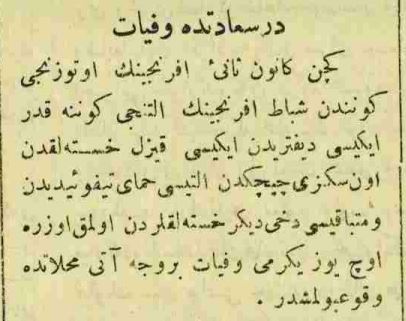 درسعادتده وفيات
كچن كانون ثانئ افرنجينك اوتوزنجى
كونندن شباط افرنجينك التنجى كوننه قدر
ايكيسى ديفتريدن ايكيسى قيزل خسته‌لقدن
اون‌سكزى چيچكدن التيسى حماى تيفوئيديدن
و متباقيسى دخى ديكر خسته‌لقلردن اولمق اوزره
اوچ يوز يكرمى وفيات بروجه آتى محلاتده
وقوعبولمشدر .